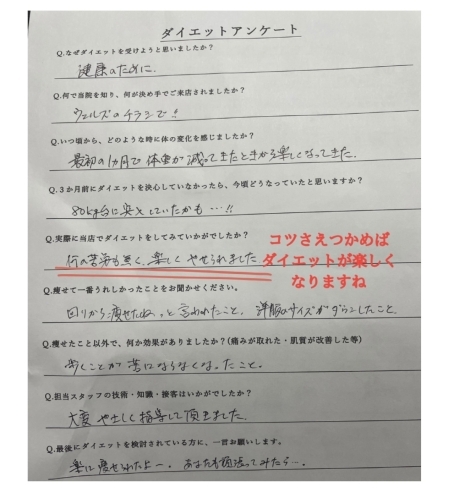 ダイエットアンケート
Q.なぜダイエットを受けようと思いましたか?
健康のために.
Q.何で当院を知り、何が決め手でご来店されましたか?
ウェルズのチラシで!!
Q.いつ頃から、どのような時に体の変化を感じましたか?
最初の1ヵ月で体重が減ってきたときから楽しくなってきた.
Q.3か月前にダイエットを決心していなかったら、今頃どうなっていたと思いますか?
80kg台に突入していたかも…!!
Q.実際に当店でダイエットをしてみていかがでしたか?
何の苦労も無く、楽しくやせられました
コツさえつかめば
ダイエットが楽しく
なりますね
Q.痩せて一番うれしかったことをお聞かせください。
回りから痩せたね。と言われたこと. 洋服のサイズがダウンしたこと.
Q.痩せたこと以外で、何か効果がありましたか?(痛みが取れた・肌質が改善した等)
歩くことが苦にならなくなったこと.
Q.担当スタッフの技術・知識・接客はいかがでしたか?
大変やさしく指導して頂きました.
Q.最後にダイエットを検討されている方に、一言お願いします。
楽に痩せられたよー. あなたも頑張ってみたら….